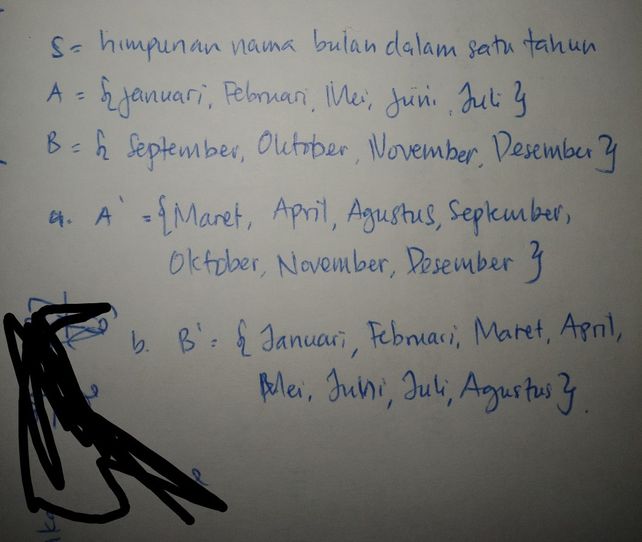 S = himpunan nama bulan dalam satu tahun
A = {Januari, Februari, Mei, Juni, Juli}
B = { September, Oktober, November, Desember}
a. A' = {Maret, April, Agustus, September,
Oktober, November, Desember }
b. B' = { Januari, Februari, Maret, April,
Mei, Juni, Juli, Agustus}.